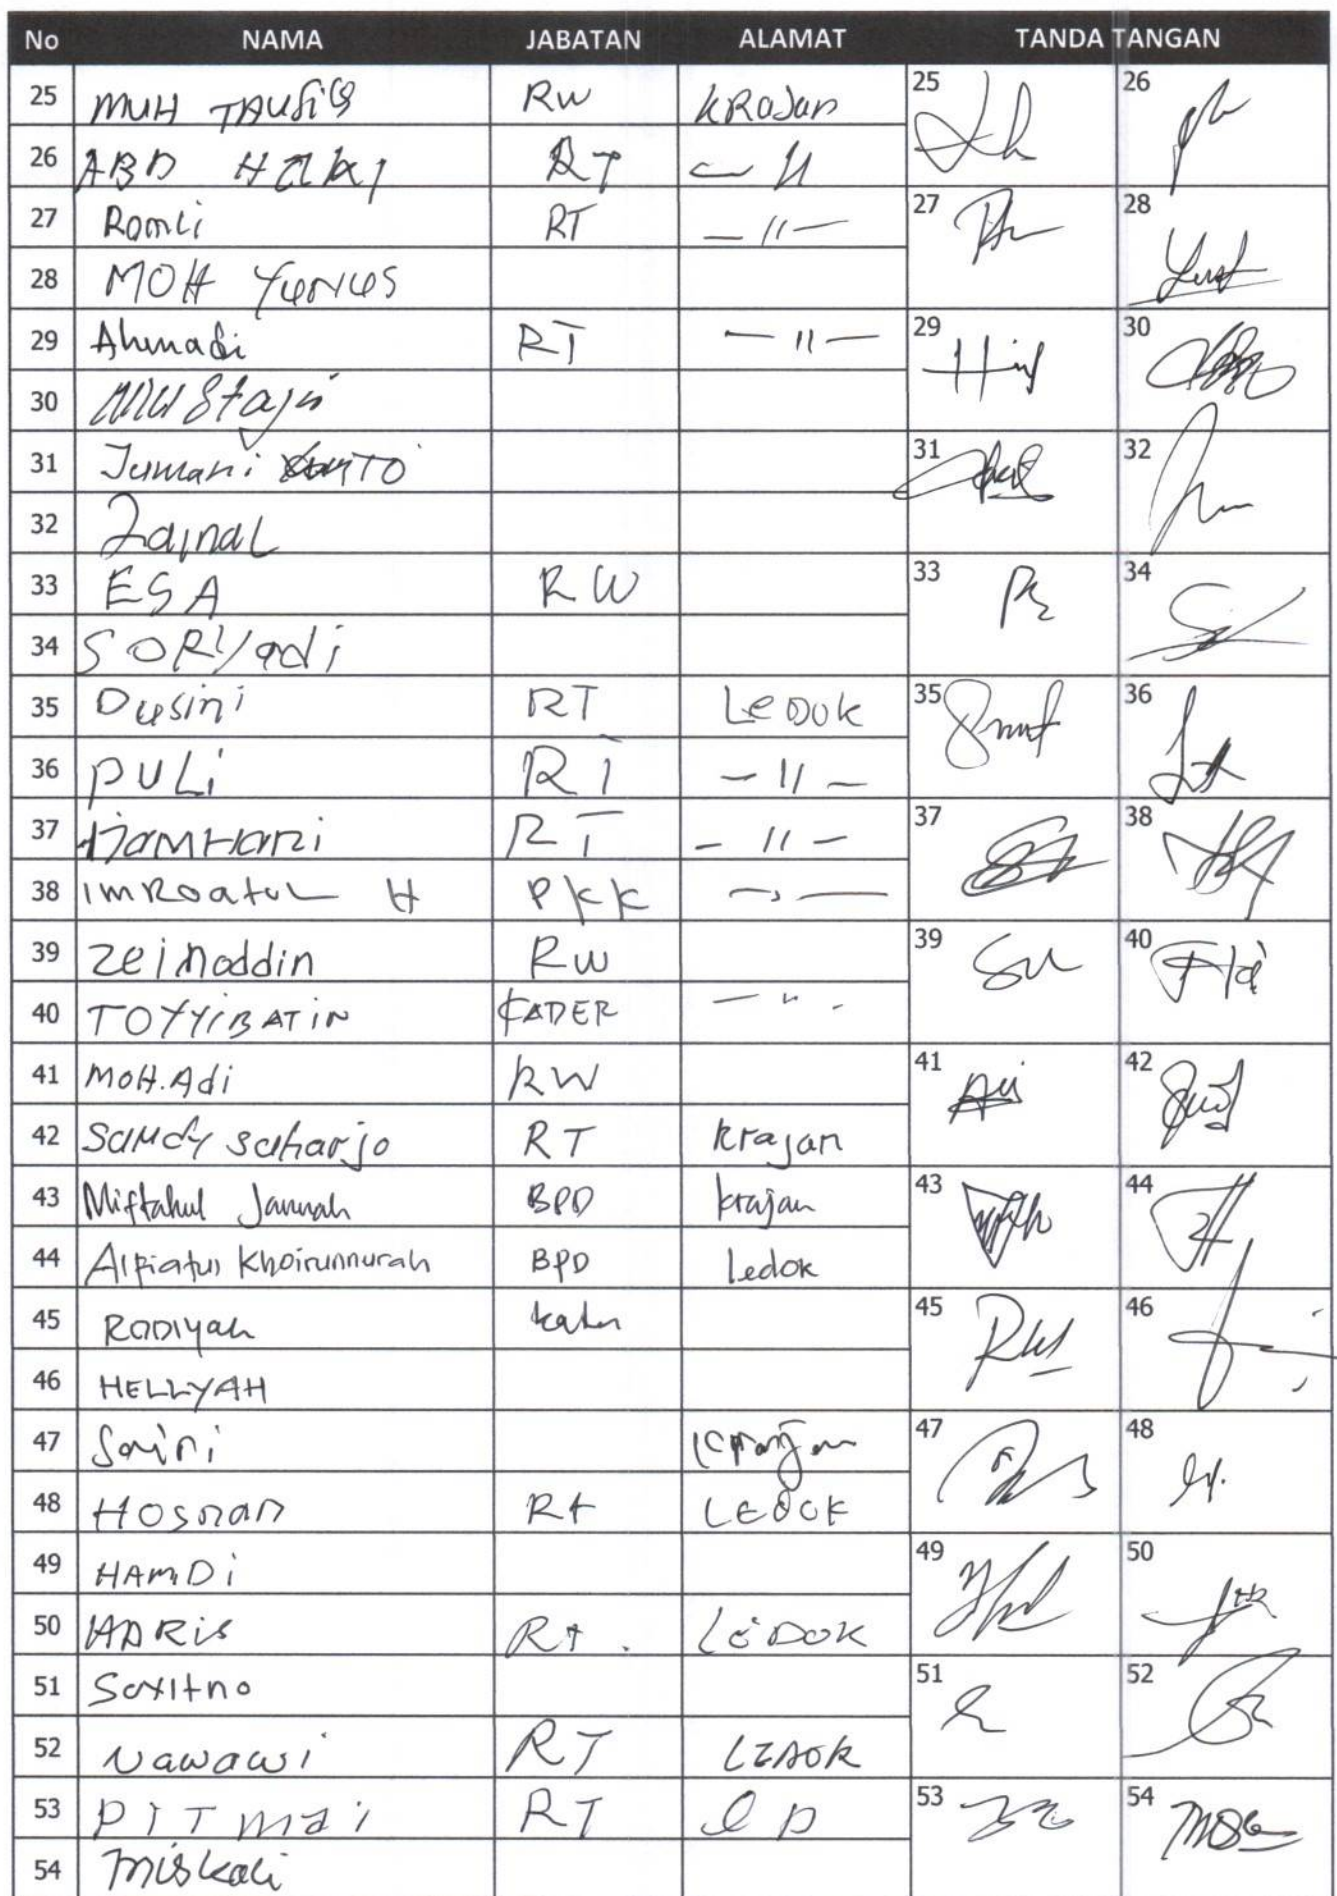 No NAMA JABATAN ALAMAT TANDA TANGAN
25 MUH TAUFIQ RW KRAJAN 25 26
26 ABD HAKI RT — 11
27 Romli RT — 11 — 27 28
28 MOH YUNUS
29 Ahmadi RT — 11 — 29 30
30 Mustaji
31 Jumari TO 31 32
32 Zainal
33 ESA RW 33 34
34 SORYadi
35 Dusini RT LeDOK 35 36
36 PULi RT — 11 —
37 RT — 11 — 37 38
38 imRoatul H PKK
39 zeinoddin RW 39 40
40 TOYYiBATiN KADER — " -
41 MOH.Adi RW 41 42
42 saharjo RT krajan
43 Miftahul Jannah BPD krajan 43 44
44 Khoirunnurah BPD ledok
45 RODiyah 45 46
46 HELLYAH
47 Saini 47 48
48 HOSnan Rt LEDOK
49 HAMDi 49 50
50 HARis Rt. LeDOK
51 51 52
52 Nawawi RT LEDOK
53 RT 53 54
54 Miskali